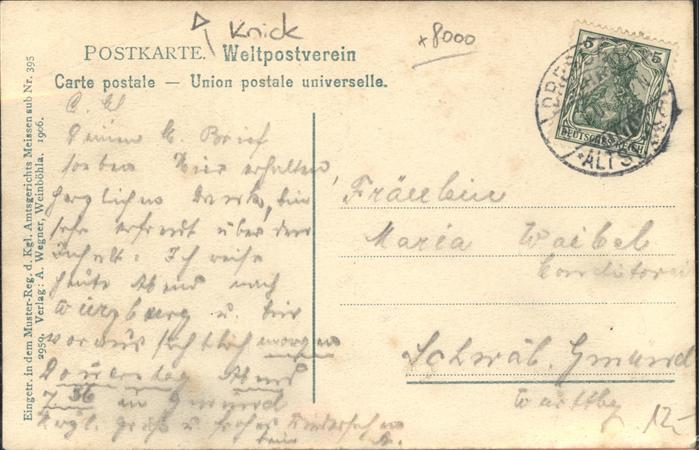 Knick
x8000
POSTKARTE. Weltpostverein
Carte postale — Union postale universelle.
5 5
DEUTSCHES REICH
DRESDEN
ALTST.
Eingetr. in dem Muster-Reg. d. Kgl. Amtsgerichts Meissen sub Nr. 395
2959. Verlag: A. Wegner, Weinböhla. 1906.
Deinen l. Brief
soeben hier erhalten
herzlichen Dank, bin
sehr erfreut über den
Inhalt. Ich reise
heute Abend nach
Würzburg u. bin
voraussichtlich morgen
Donnerstag Abend
7.56 in Gmünd
Herzl. Gruß u. frohes Wiedersehen
Dein
Fräulein
Maria Waibel
Conditorei
Schwäb. Gmünd
Württbg
12-